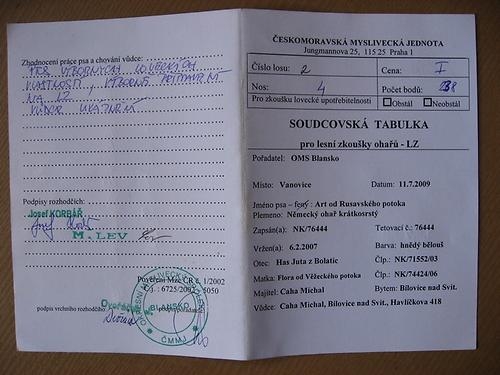 Zhodnocení práce psa a chování vůdce:
PES VÝBORNÝCH LOVECKÝCH
VLASTNOSTÍ, VÝBORNĚ PŘIPRAVEN
NA LZ
VŮDCE UKÁZNĚNÝ
Podpisy rozhodčích:
Josef KORBÁŘ
M. LEV
Pověření Mze ČR č. 1/2002
Č.j.: 6725/2002 - 5050
podpis vrchního rozhodčího
podpis pořadatele
OKRESNÍ MYSLIVECKÝ SPOLEK
BLANSKO
ČMMJ
ČESKOMORAVSKÁ MYSLIVECKÁ JEDNOTA
Jungmannova 25, 115 25 Praha 1
Číslo losu: 2
Cena: I
Nos: 4
Počet bodů: 238
Pro zkoušku lovecké upotřebitelnosti
Obstál Neobstál
SOUDCOVSKÁ TABULKA
pro lesní zkoušky ohařů - LZ
Pořadatel: OMS Blansko
Místo: Vanovice Datum: 11.7.2009
Jméno psa – feny : Art od Rusavského potoka
Plemeno: Německý ohař krátkosrstý
Zapsán(a): NK/76444 Tetovací č.: 76444
Vržen(a): 6.2.2007 Barva: hnědý bělouš
Otec: Has Juta z Bolatic Člp.: NK/71552/03
Matka: Flora od Věžeckého potoka Člp.: NK/74424/06
Majitel: Caha Michal Bytem: Bílovice nad Svit.
Vůdce: Caha Michal, Bílovice nad Svit., Havlíčkova 418